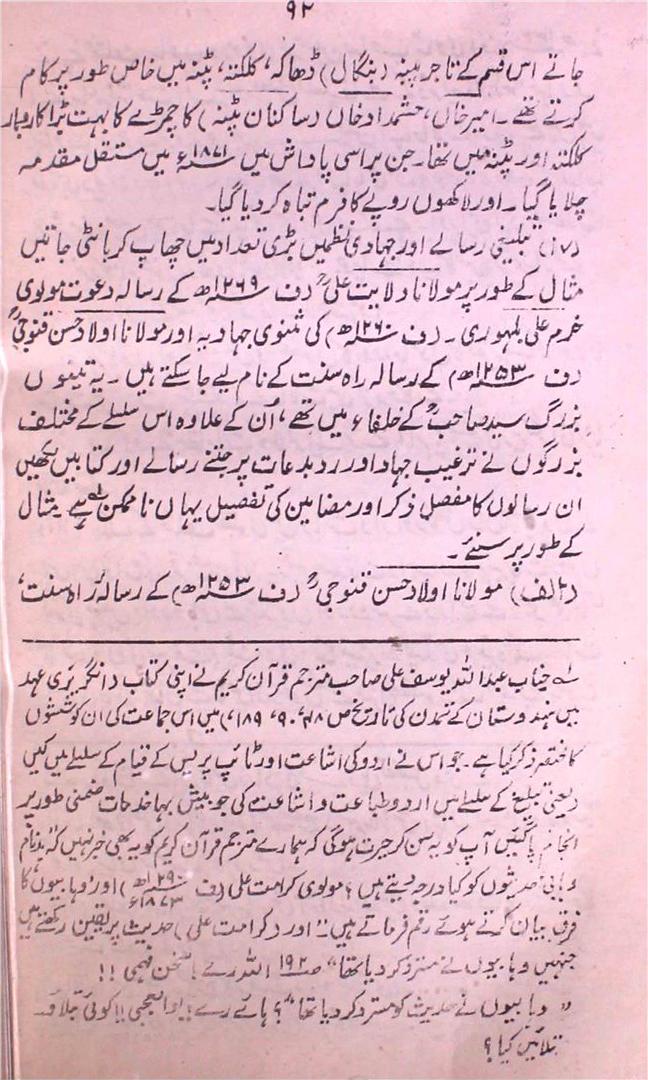 ۹۲
جاتے اس قسم کے تاجر پٹنہ (بنگال) ڈھاکہ، کلکتہ، پٹنہ میں خاص طور پر کام
کرتے تھے۔ امیر خاں، حشمداد خاں (ساکنان پٹنہ) کا چمڑے کا بہت بڑا کاروبار
کلکتہ اور پٹنہ میں تھا۔ جن پر اسی پاداش میں ۱۸۷۱ء میں مستقل مقدمہ
چلایا گیا۔ اور لاکھوں روپے کا فرم تباہ کر دیا گیا۔
(۱۷) تبلیغی رسالے اور جہادی نظمیں بڑی تعداد میں چھاپ کر بانٹی جاتیں
مثال کے طور پر مولانا ولایت علیؒ (ف ۱۲۶۹ھ) کے رسالہ دعوت مولوی
خرم علی بلہوری۔ (ف ۱۲۶۰ھ) کی مثنوی جہادیہ اور مولانا اولاد حسن قنوجیؒ
(ف ۱۲۵۳ھ) کے رسالہ راہ سنت کے نام لیے جا سکتے ہیں۔ یہ تینوں
بزرگ سید صاحبؒ کے خلفاء میں تھے، اُن کے علاوہ اس سلسلے کے مختلف
بزرگوں نے ترغیب جہاد اور رد بدعات پر جتنے رسالے اور کتابیں لکھیں
ان رسالوں کا مفصل ذکر اور مضامین کی تفصیل یہاں ناممکن ہے لہ مثال
کے طور پر سنئے۔
(الف) مولانا اولاد حسن قنوجیؒ (ف ۱۲۵۳ھ) کے رسالہ ’راہ سنت‘
لہ جناب عبداللہ یوسف علی صاحب مترجم قرآن کریم نے اپنی کتاب (انگریزی عہد
میں ہندوستان کے تمدن کی تاریخ ص ۱۸۸، ۹۰، ۱۸۹) میں اس جماعت کی ان کوششوں
کا مختصر ذکر کیا ہے۔ جو اس نے اردو کی اشاعت اور ٹائپ پریس کے قیام کے سلسلے میں کیں
(یعنی تبلیغ کے سلسلے میں اردو طباعت و اشاعت کی جو بیش بہا خدمات ضمنی طور پر
انجام پا گئیں آپ کو یہ سن کر حیرت ہوگی کہ ہمارے مترجم قرآن کریم کو یہ بھی خبر نہیں کہ بدنام
وہابی حدیثوں کو کیا درجہ دیتے ہیں؟ مولوی کرامت علی (ف ۱۲۹۰ھ ۱۸۷۳ء) اور وہابیوں کا
فرق بیان کرتے ہوئے رقم فرماتے ہیں "اور (کرامت علی) حدیث پر یقین رکھتے ہیں
جنہیں وہابیوں نے مسترد کر دیا تھا" ص ۱۹۲ اللہ رے سخن فہمی !!
"وہابیوں نے حدیث کو مسترد کر دیا تھا"؟ ہائے رے بوالعجبی !! کوئی بتلاؤ
بتلائیں کیا؟